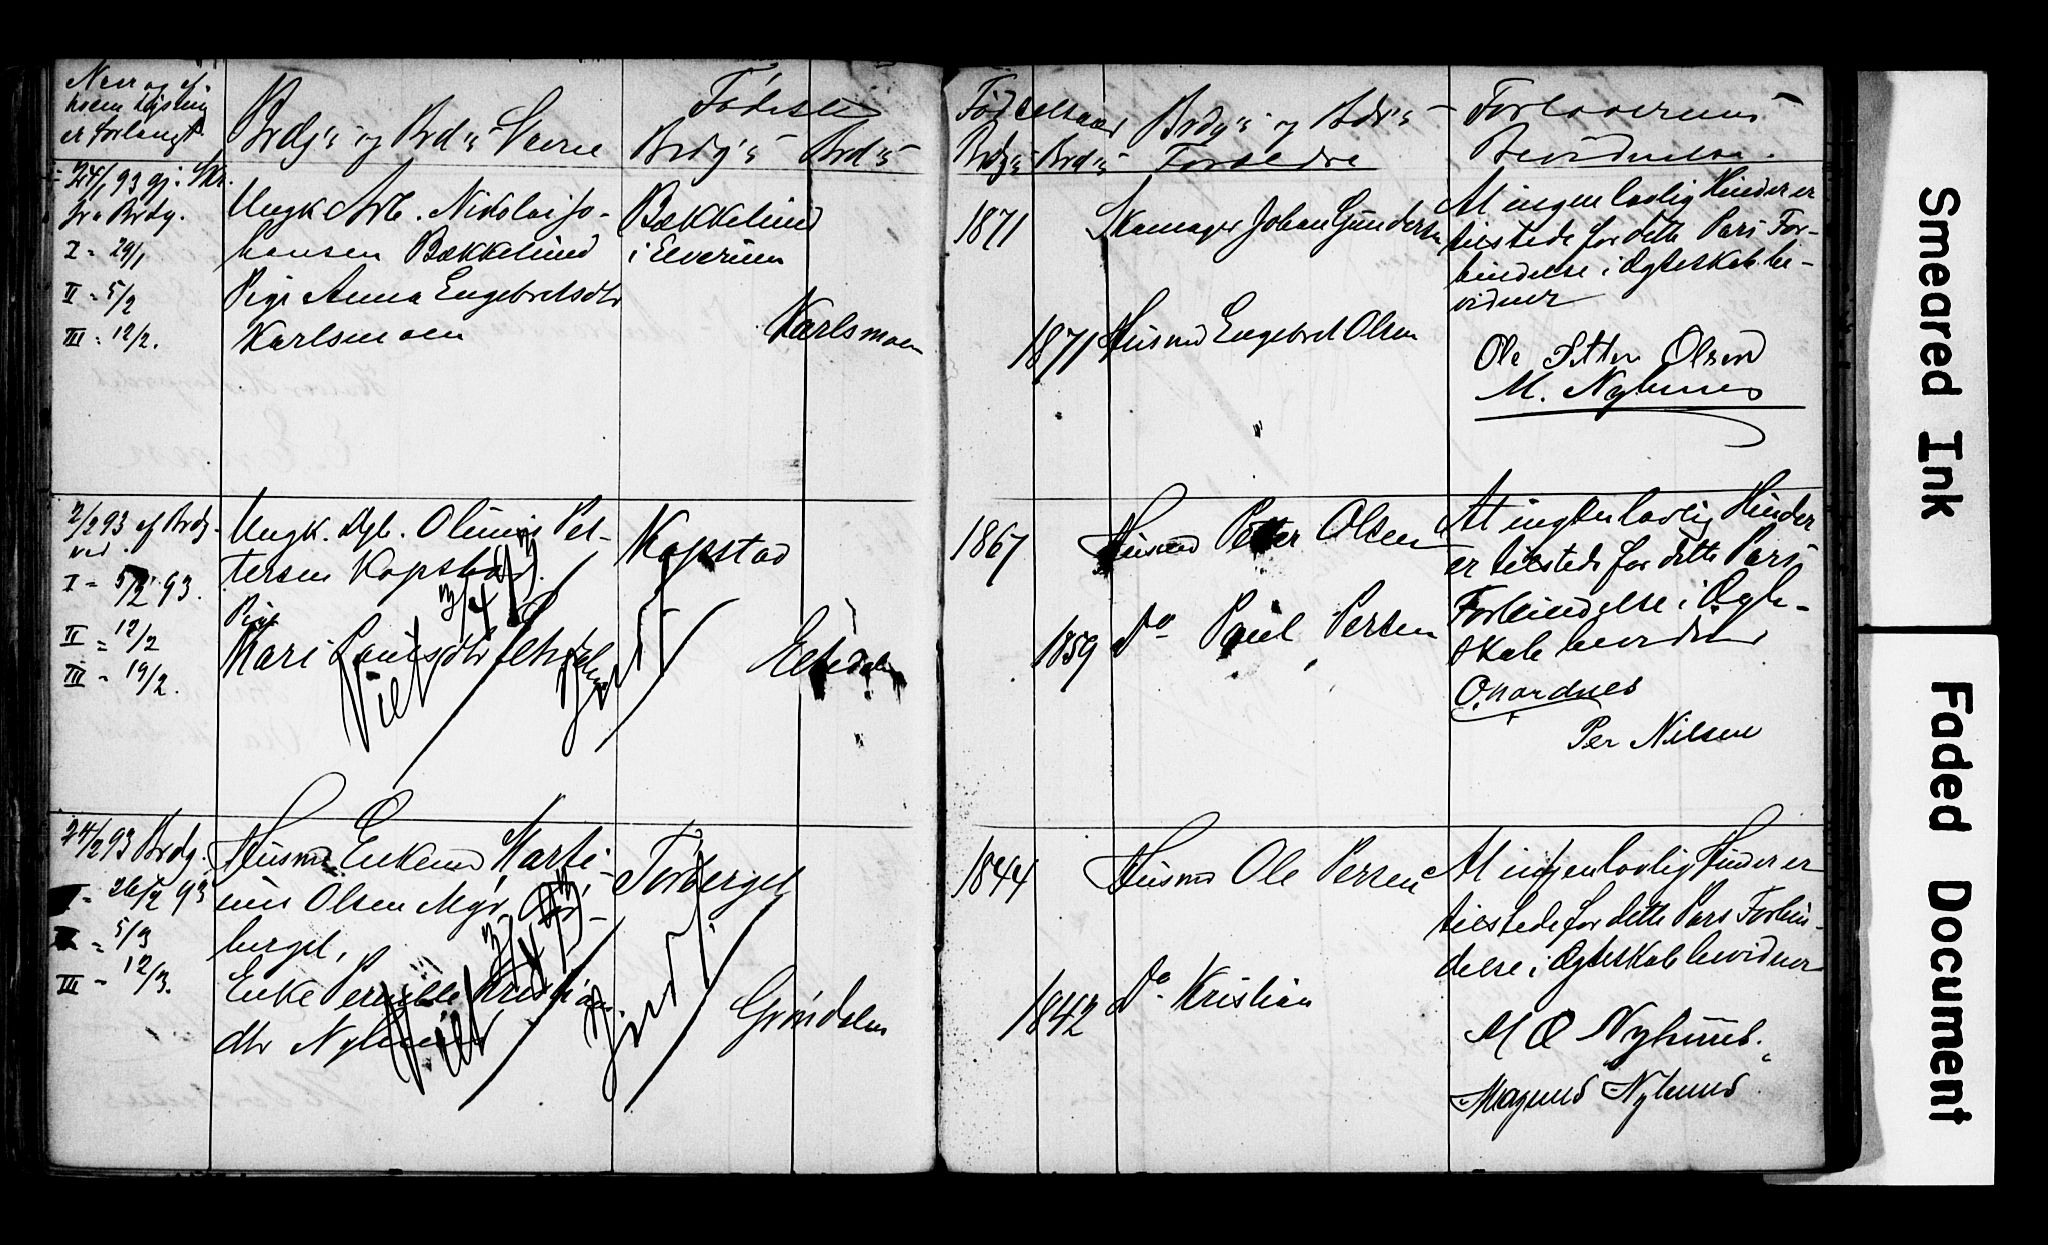 Naar og af
hvem Lysning
er forlangt
Brdg's og Brd's Navne
Fødested
Brdg's Brd's
Fødselsaar
Brdg's Brd's
Brdg's og Brd's
Forældre
Forlovernes
Bevidnelse.
24/1 93 gj. Skr.
fra Brdg.
I = 29/1
II = 5/2
III = 12/2.
Ungk Arb. Nikolai Jo-
hansen Bækkelund
Pige Anna Engebretsdtr
Karlsmoen
Bækkelund
i Elverum
Karlsmoen
1871
1871
Skomager Johan Gundersen
Husmd Engebret Olsen
At ingen lovlig Hinder er
tilstede for dette Pars For-
bindelse i Ægteskab be-
vidner
Ole Petter Olsen
M. Nyhuus
2/2 93 af Brdg.
ved
I = 5/2 93.
II = 12/2
III = 19/2.
Ungk. Dgb. Olinus Pet-
tersen Kopstad.
Pige
Mari Paulsdtr
Viet 3/4 93
Indf.
Kopstad
1867
1859
Husmd Petter Olsen
Do Paul Persen
At ingen lovlig Hinder
er tilstede for dette Pars
Forbindelse i Ægte-
skab bevidner
O. Nordnes
Per Nilsen
24/2 93 Brdg.
I = 26/2 93
II = 5/3
III = 12/3.
Husmd Enkemd Marti-
nus Olsen Myr, Tør-
berget,
Enke Pernille Kristian
dtr Nyhuus
Viet 3/4 93
Indf.
Tørberget
Grøndalen
1844
1842
Husmd Ole Persen
Do Kristian
At ingen lovlig Hinder er
tilstede for dette Pars Forbin-
delse i Ægteskab bevidner
M O Nyhuus.
Magnus Nyhuus
Smeared Ink
Faded Document